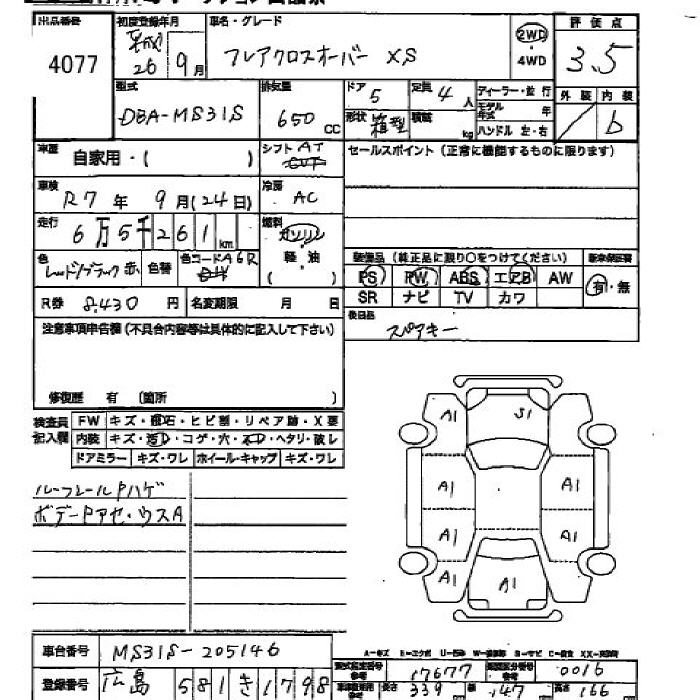 出品番号 初度登録年月 車名・グレード 評価点
4077 平成 26 9月 フレアクロスオーバー XS 2WD・4WD 3.5
型式 排気量 ドア 定員 ディーラー・並行 外装 内装
DBA-MS31S 650 CC 5 4人 モデル年式 年 b
形状 箱型 積載 kg ハンドル 左・右
車歴 自家用・( ) シフト AT セールスポイント(正常に機能するものに限ります)
車検 R7年 9月(24日) 冷房 AC
走行 6万5千261km 燃料 ガソリン
軽・油
( )
色 レッド/ブラック 赤 色替 色コード A6R
装備品(純正品に限り○をつけてください) 新車保証書
PS PW ABS エアB AW 有・無
SR ナビ TV カワ
R券 8,430円 名変期限 月 日
後日品 スペアキー
注意事項申告欄(不具合内容等は具体的に記入して下さい)
修復歴 有 (箇所 )
検査員記入欄 FW キズ・飛石・ヒビ割・リペア跡・X要
内装 キズ・汚れ・コゲ・穴・・ヘタリ・破レ
ドアミラー キズ・ワレ ホイール・キャップ キズ・ワレ
ルーフレールPハゲ
ボデーPアセ・ウスA
A1 S1 A1
A1 A1
A1 A1
A1 A1
A-キズ
車台番号 MS31S-205146
型式指定番号 17677 類別区分番号 0016
登録番号 広島 581 き 1798
長さ 339 幅 147 高さ 166